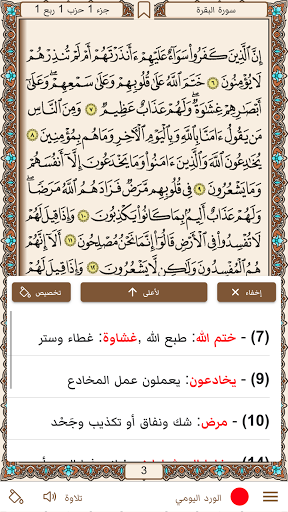 سورة البقرة
جزء 1 حزب 1 ربع 1
إِنَّ ٱلَّذِينَ كَفَرُوا۟ سَوَآءٌ عَلَيْهِمْ ءَأَنذَرْتَهُمْ أَمْ لَمْ تُنذِرْهُمْ
لَا يُؤْمِنُونَ ٦ خَتَمَ ٱللَّهُ عَلَىٰ قُلُوبِهِمْ وَعَلَىٰ سَمْعِهِمْ ۖ وَعَلَىٰٓ
أَبْصَٰرِهِمْ غِشَٰوَةٌ ۖ وَلَهُمْ عَذَابٌ عَظِيمٌ ٧ وَمِنَ ٱلنَّاسِ
مَن يَقُولُ ءَامَنَّا بِٱللَّهِ وَبِٱلْيَوْمِ ٱلْءَاخِرِ وَمَا هُم بِمُؤْمِنِينَ ٨
يُخَٰدِعُونَ ٱللَّهَ وَٱلَّذِينَ ءَامَنُوا۟ وَمَا يَخْدَعُونَ إِلَّآ أَنفُسَهُمْ
وَمَا يَشْعُرُونَ ٩ فِى قُلُوبِهِم مَّرَضٌ فَزَادَهُمُ ٱللَّهُ مَرَضًا ۖ
وَلَهُمْ عَذَابٌ أَلِيمٌۢ بِمَا كَانُوا۟ يَكْذِبُونَ ١٠ وَإِذَا قِيلَ لَهُمْ
لَا تُفْسِدُوا۟ فِى ٱلْأَرْضِ قَالُوٓا۟ إِنَّمَا نَحْنُ مُصْلِحُونَ ١١ أَلَآ إِنَّهُمْ
هُمُ ٱلْمُفْسِدُونَ وَلَٰكِن لَّا يَشْعُرُونَ ١٢ وَإِذَا قِيلَ لَهُمْ
إخفاء ×
لأعلى ↑
تخصيص
(7) - ختم الله: طبع الله ,غشاوة: غطاء وستر
(9) - يخادعون: يعملون عمل المخادع
(10) - مرض: شك ونفاق أو تكذيب وجَحْد
3
الورد اليومي
تلاوة